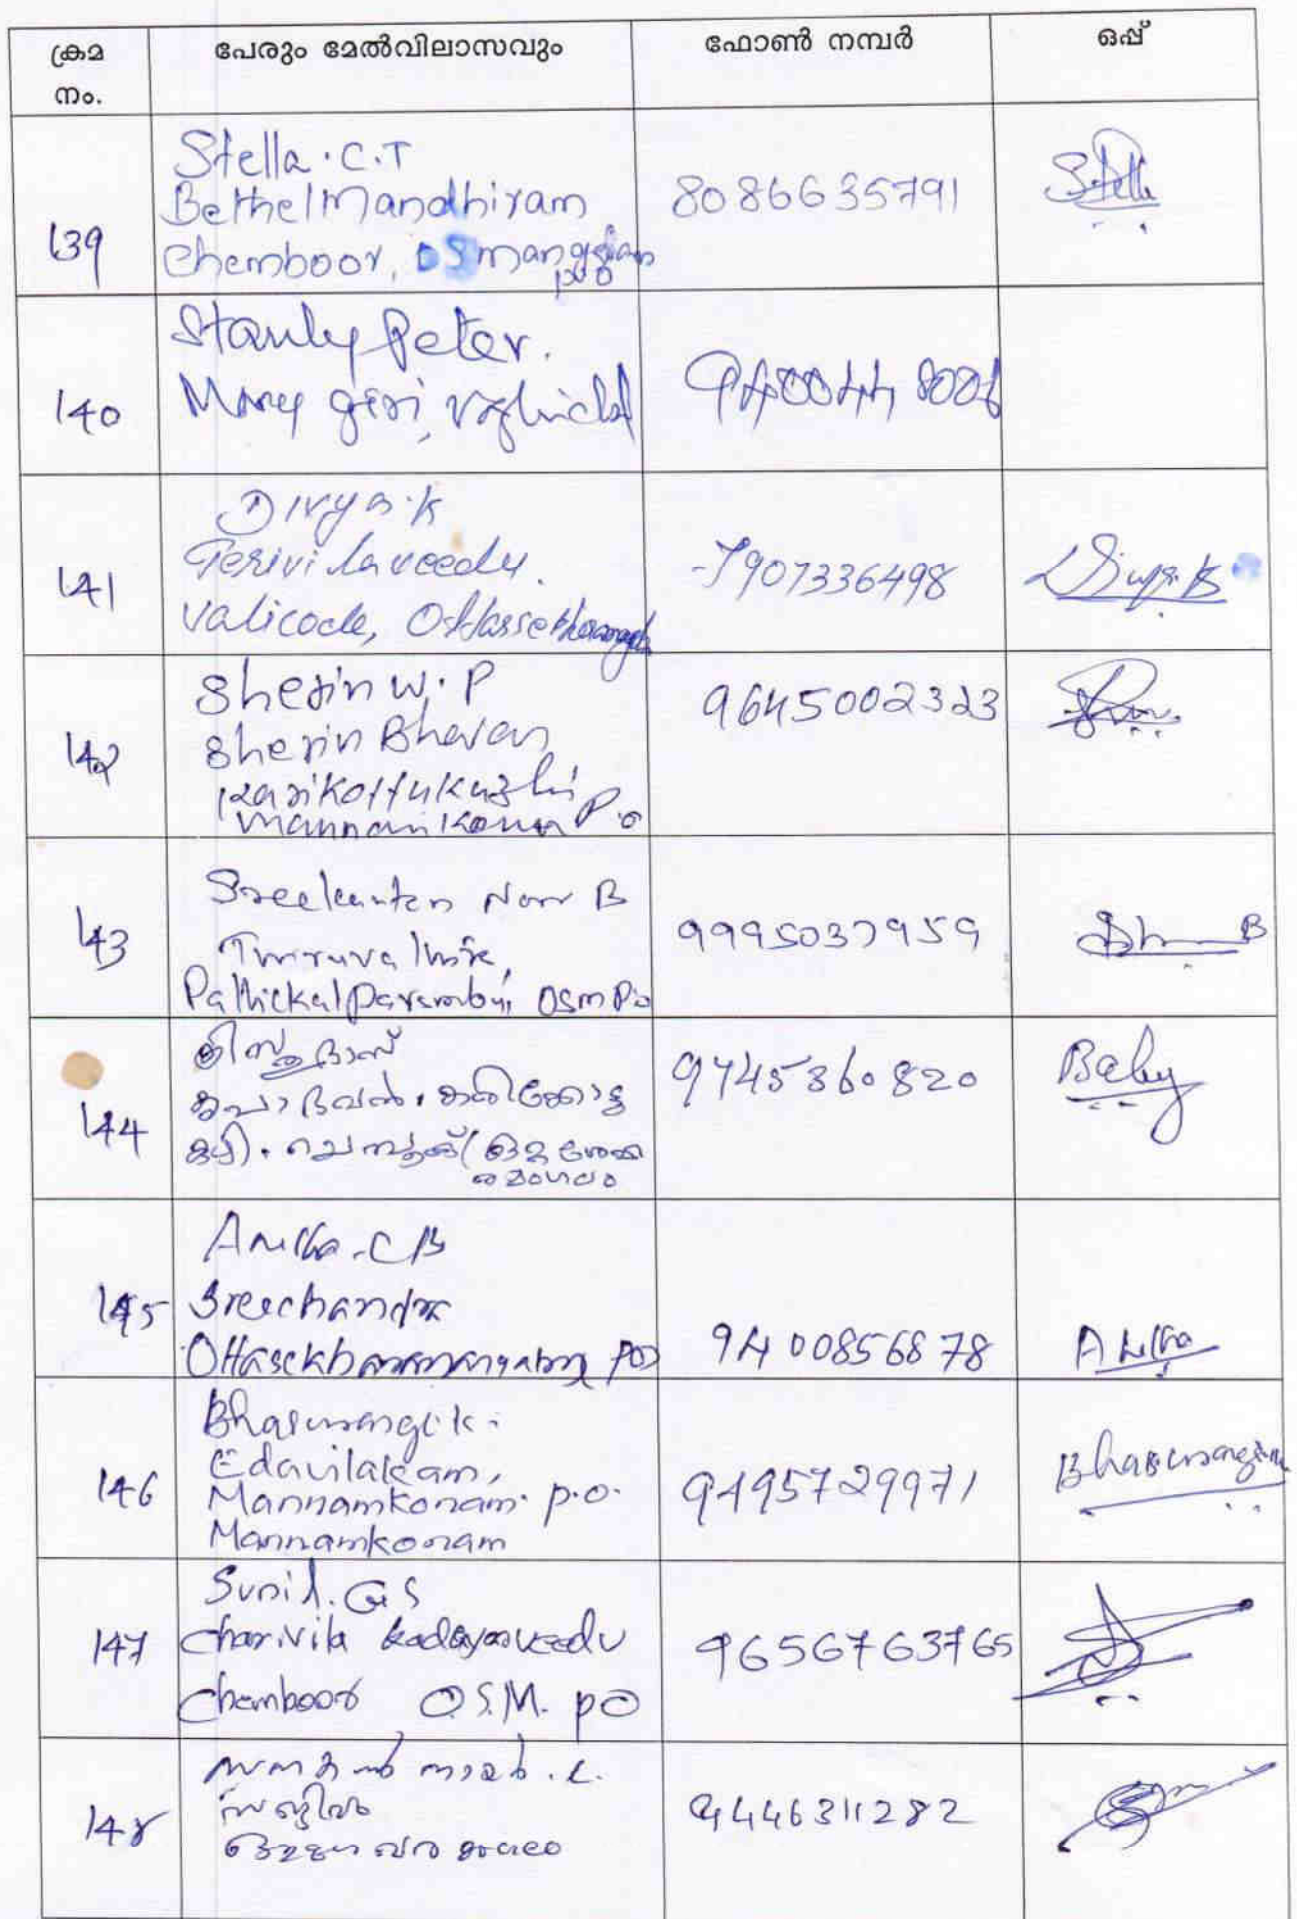 ക്രമ നം. പേരും മേൽവിലാസവും ഫോൺ നമ്പർ ഒപ്പ്
139
Stella . C . T
Bethel Mandhiram
Chemboor, OSmangalam
P O
8086635791
Stella
140
Stanly Peter.
Mary giri,
141
Divya . K
Perivilaveedu.
Valicode, Ottassekharamangalam
7907336498
Divya. K
142
Sherin W. P
Sherin Bhavan
Karikottukuzhi
Mannamkonam P.o
9645002323
143
Sreekantan Nair B
Pallickalparambu, OSM P.o
9995037959
144
ക്രിസ്തുദാസ്
കൃപാ ഭവൻ,
9745360820
Baby
145
Anitha . C B
Sreechandra
Ottasekharamangalam PO
9400856878
Anitha
146
Bhasurangi . K .
Edavilakam,
Mannamkonam. p.o.
Mannamkonam
9495729971
147
Sunil. G S
Charivila Kadayaraveedu
Chemboor O.S.M. PO
9656763765
148
നായർ .
9446311282